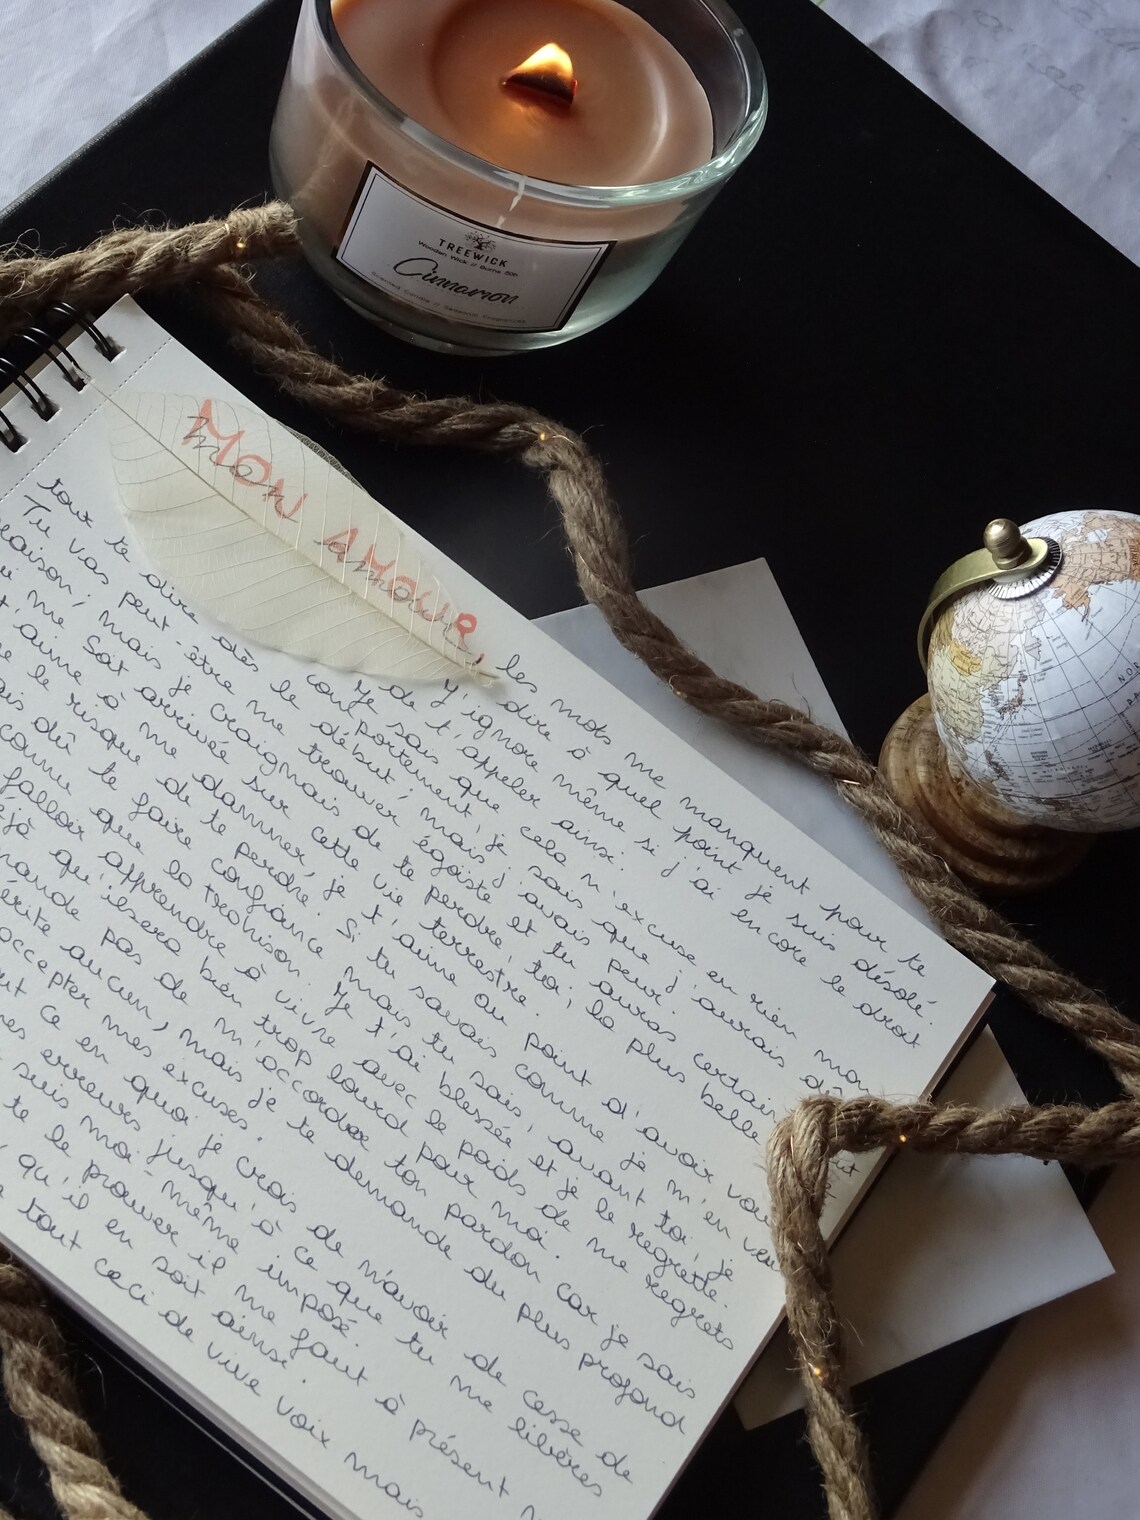 TREEWICK
Wooden Wick // Burns 50h
Cinnamon
MON AMOUR,
mon amour,
les mots me manquent pour te
dire à quel point je suis désolé.
J'ignore même si j'ai encore le droit
de t'appeler ainsi.
Je sais que cela n'excuse en rien mon
comportement, je sais que j'aurais dû
tout te dire dès le début, mais j'avais peur.
Tu vas peut-être me trouver égoïste et tu auras certainement
raison, mais je craignais de te perdre, toi, la plus belle
me soit arrivée sur cette vie terrestre.
t'aime à me damner, je t'aime au point d'avoir voulu
le risque de te perdre. Si tu savais comme je m'en veux
dû te faire confiance mais tu sais, avant toi, je
connu que la trahison. Je t'ai blessée et je le regrette.
falloir apprendre à vivre avec le poids de me regrets
déjà qu'il sera bien trop lourd pour moi.
pas de m'accorder ton pardon car je sais
mérite aucun, mais je te demande du plus profond
accepter mes excuses.
ce en quoi je crois de n'avoir de cesse de
mes erreurs jusqu'à ce que tu me libères
suis moi-même imposé.
te le prouver il me faut à présent
qu'il en soit ainsi.
tout ceci de vive voix mais